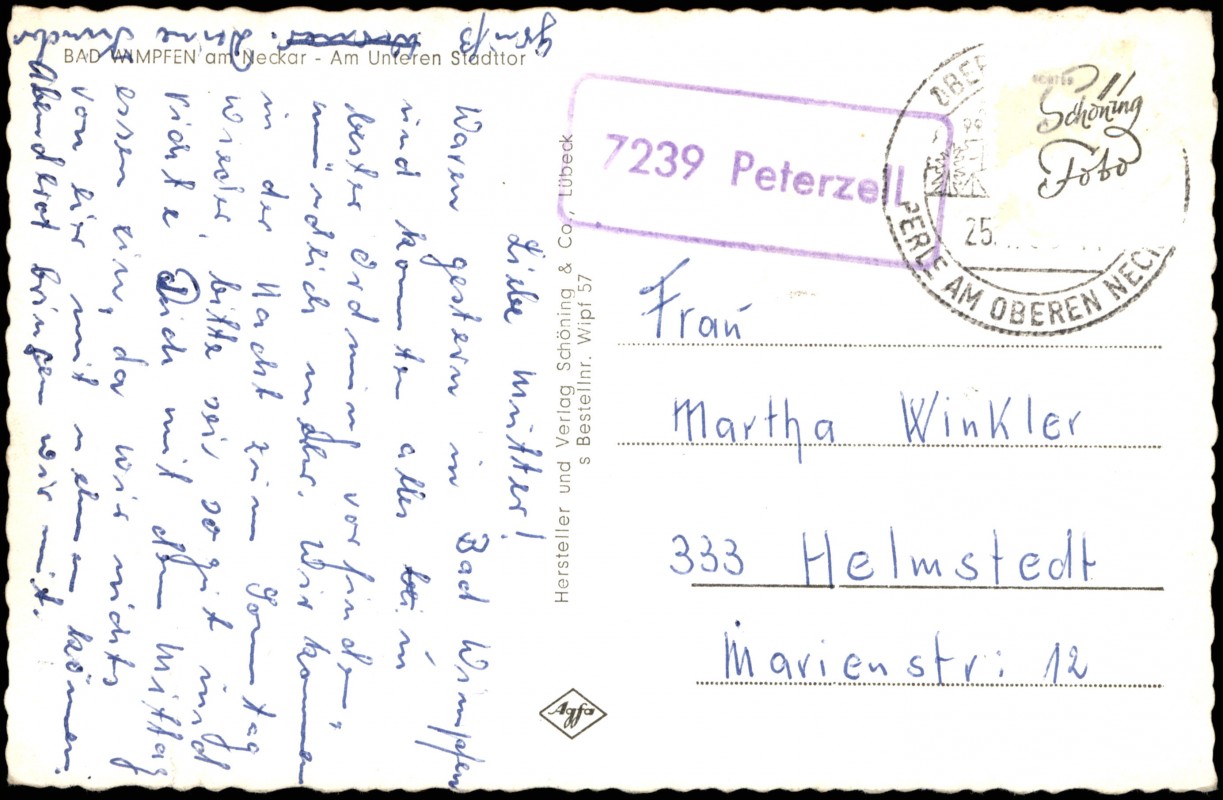 BAD WIMPFEN am Neckar - Am Unteren Stadttor
Liebe Mutter!
Waren gestern in Bad Wimpfen
und konnten alles in
bester Ordnung vorfinden,
mündlich mehr. Wir kommen
in der Nacht zum Sonntag
wieder, bitte sei so gut und
richte Dich mit dem Mittag
essen ein, da wir nichts
von hier mit nehmen können.
Abendbrot bringen wir mit.
Gruß
Deine
Hersteller und Verlag Schöning & Co., Lübeck
s Bestellnr. Wipf 57
Agfa
7239 Peterzell
OBER
25.
PERLE AM OBEREN NECK
ECHTES
Schöning
Foto
Frau
Martha Winkler
333 Helmstedt
Marienstr: 12